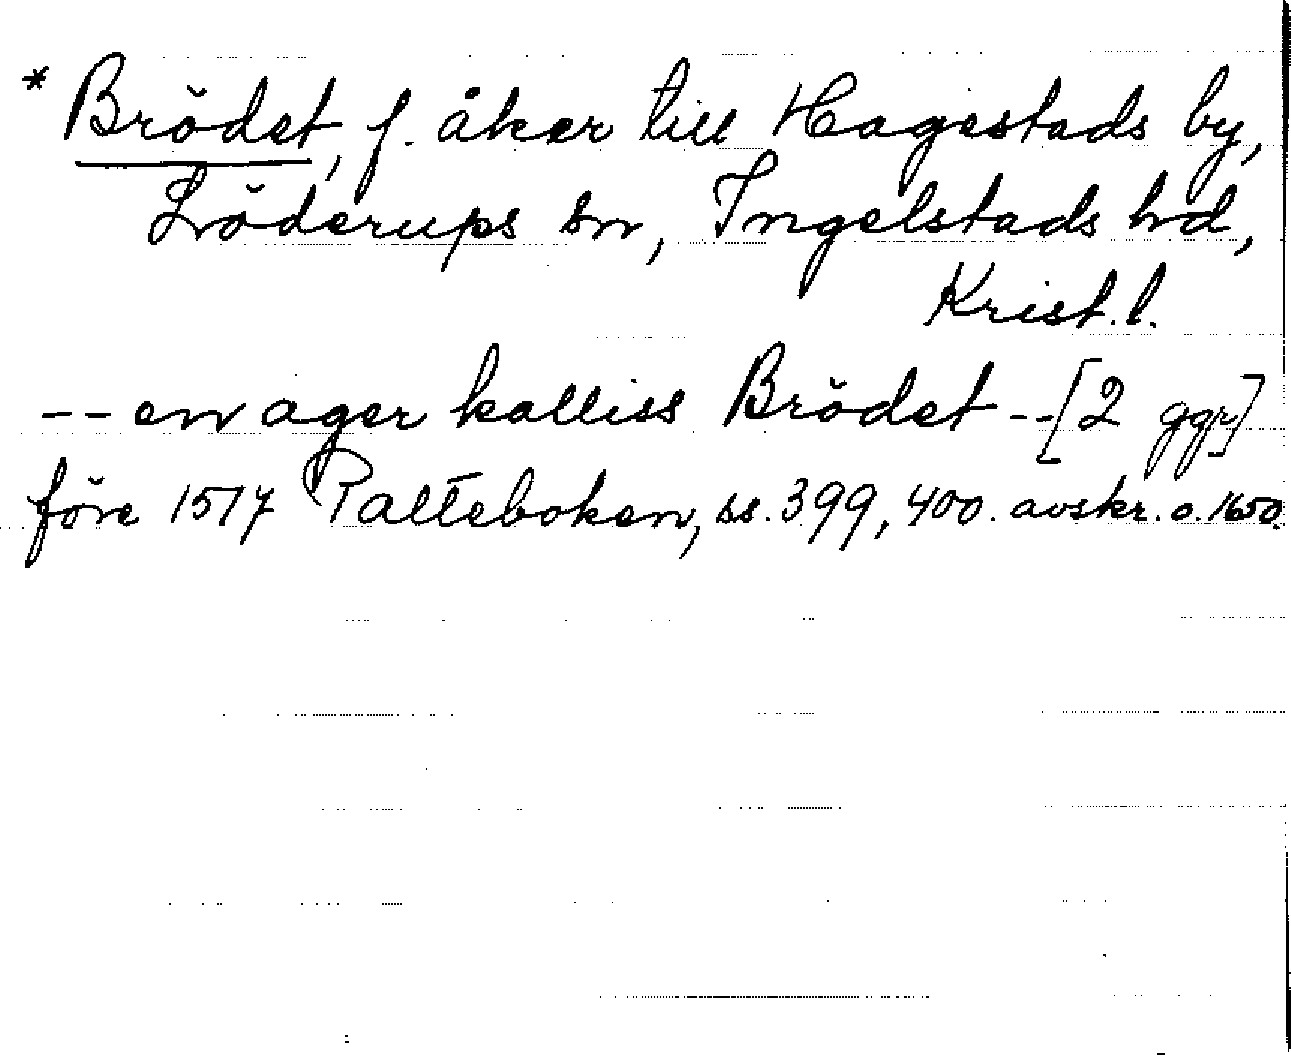 * Brödet, f. åker till Hagestads by,
Löderups sn, Ingelstads hd,
Krist. l.
-- en ager kalliss Brödet --[2 ggr]
före 1517 Palteboken, ss. 399, 400. avskr. o. 1650.